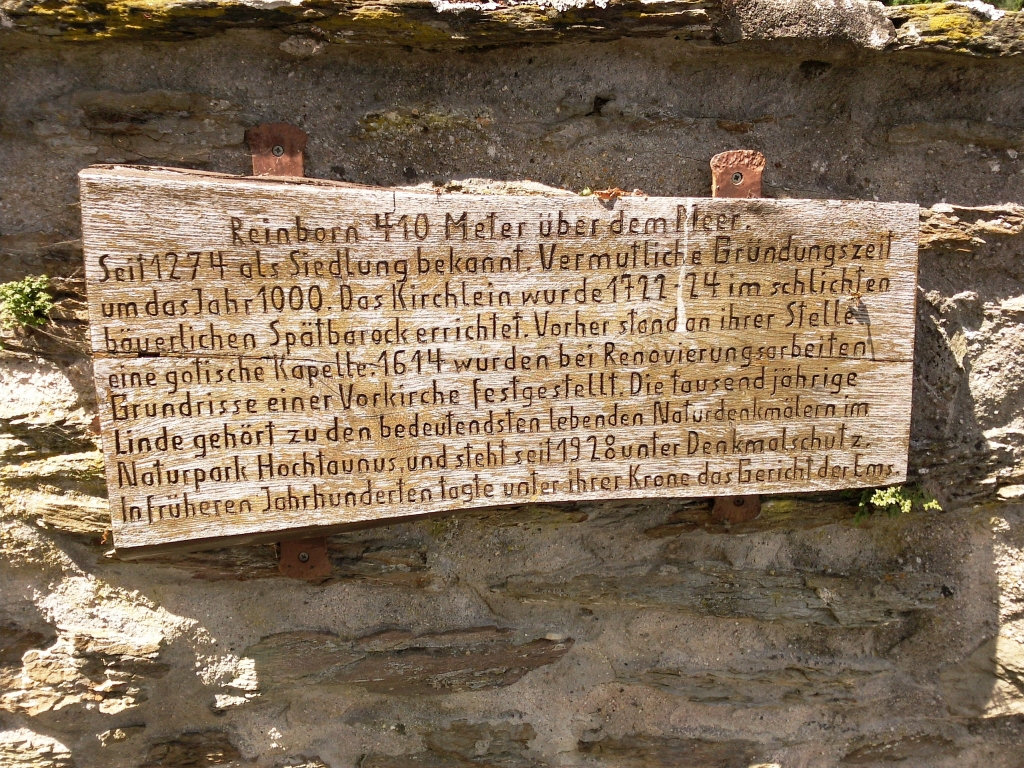 Reinborn 410 Meter über dem Meer.
Seit 1274 als Siedlung bekannt. Vermutliche Gründungszeit
um das Jahr 1000. Das Kirchlein wurde 1722-24 im schlichten
bäuerlichen Spätbarock errichtet. Vorher stand an ihrer Stelle
eine gotische Kapelle. 1614 wurden bei Renovierungsarbeiten
Grundrisse einer Vorkirche festgestellt. Die tausendjährige
Linde gehört zu den bedeutendsten lebenden Naturdenkmälern im
Naturpark Hochtaunus, und steht seit 1928 unter Denkmalschutz.
In früheren Jahrhunderten tagte unter ihrer Krone das Gericht der Ems.